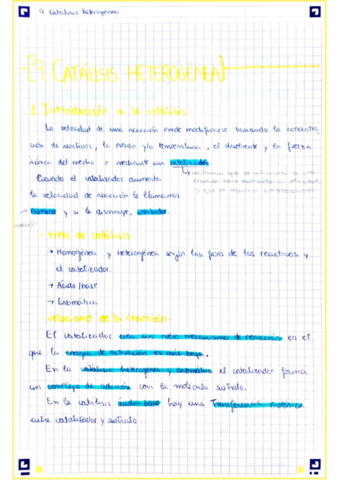 9 Catálisis heterogénea
[9 CATÁLISIS HETEROGÉNEA]
1. Introducción a la catálisis
La velocidad de una reacción puede modificarse variando la concentra
ción de reactivos, la presión y/o temperatura, el disolvente y la fuerza
iónica del medio o mediante un catalizador
Cuando el catalizador aumenta
la velocidad de reacción lo llamamos
y si la disminuye, inhibidor.
· Tipos de catálisis
→ Homogénea y Heterogénea según las fases de los reactivos y
el catalizador.
→ Ácido/base
→ Enzimática
Velocidad de la reacción
El catalizador crea un nuevo mecanismo de reacción en el
que la energía de activación es más baja.
En la catálisis heterogénea y enzimática el catalizador forma
un complejo de con la molécula sustrato.
En la catálisis ácido base hay una Transferencia
entre catalizador y sustrato.